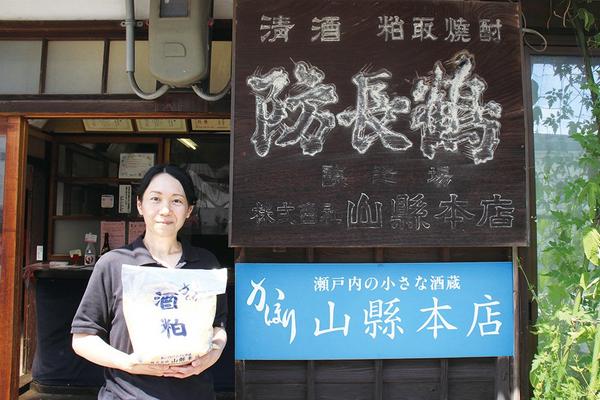 清酒 粕取焼酎
防長鶴
醸造場
株式会社 山縣本店
瀬戸内の小さな酒蔵
かほり 山縣本店
かほり
酒粕
山縣本店